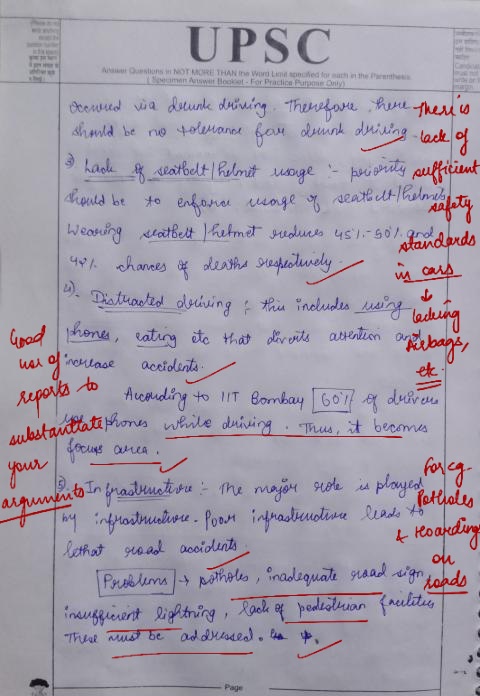 UPSC
Answer Questions in NOT MORE THAN the Word Limit specified for each in the Parenthesis.
( Specimen Answer Booklet - For Practice Purpose Only)
occured via drunk driving. Therefore, there
should be no tolerance for drunk driving.
3) Lack of seatbelt/helmet usage :- priority
should be to enforce usage of seatbelt/helmets
Wearing seatbelt/helmet reduces 45%-50% and
chances of deaths respectively.
4). Distracted driving :- this includes using
phones, eating etc that diverts attention and
increase accidents.
According to IIT Bombay 60% of drivers
use phones while driving. Thus, it becomes
focus area.
5) Infrastructure :- The major role is played
by infrastructure. Poor infrastructure leads to
lethal road accidents.
Problems → potholes, inadequate road sign,
insufficient lightning, lack of pedestrian facilities
These must be addressed.
There is
lack of
sufficient
safety
standards
in cars
↓
lacking
Airbags,
etc
Good
use of
reports to
substantiate
your
arguments
For eg-
Potholes
& Hoardings
on
roads
Page